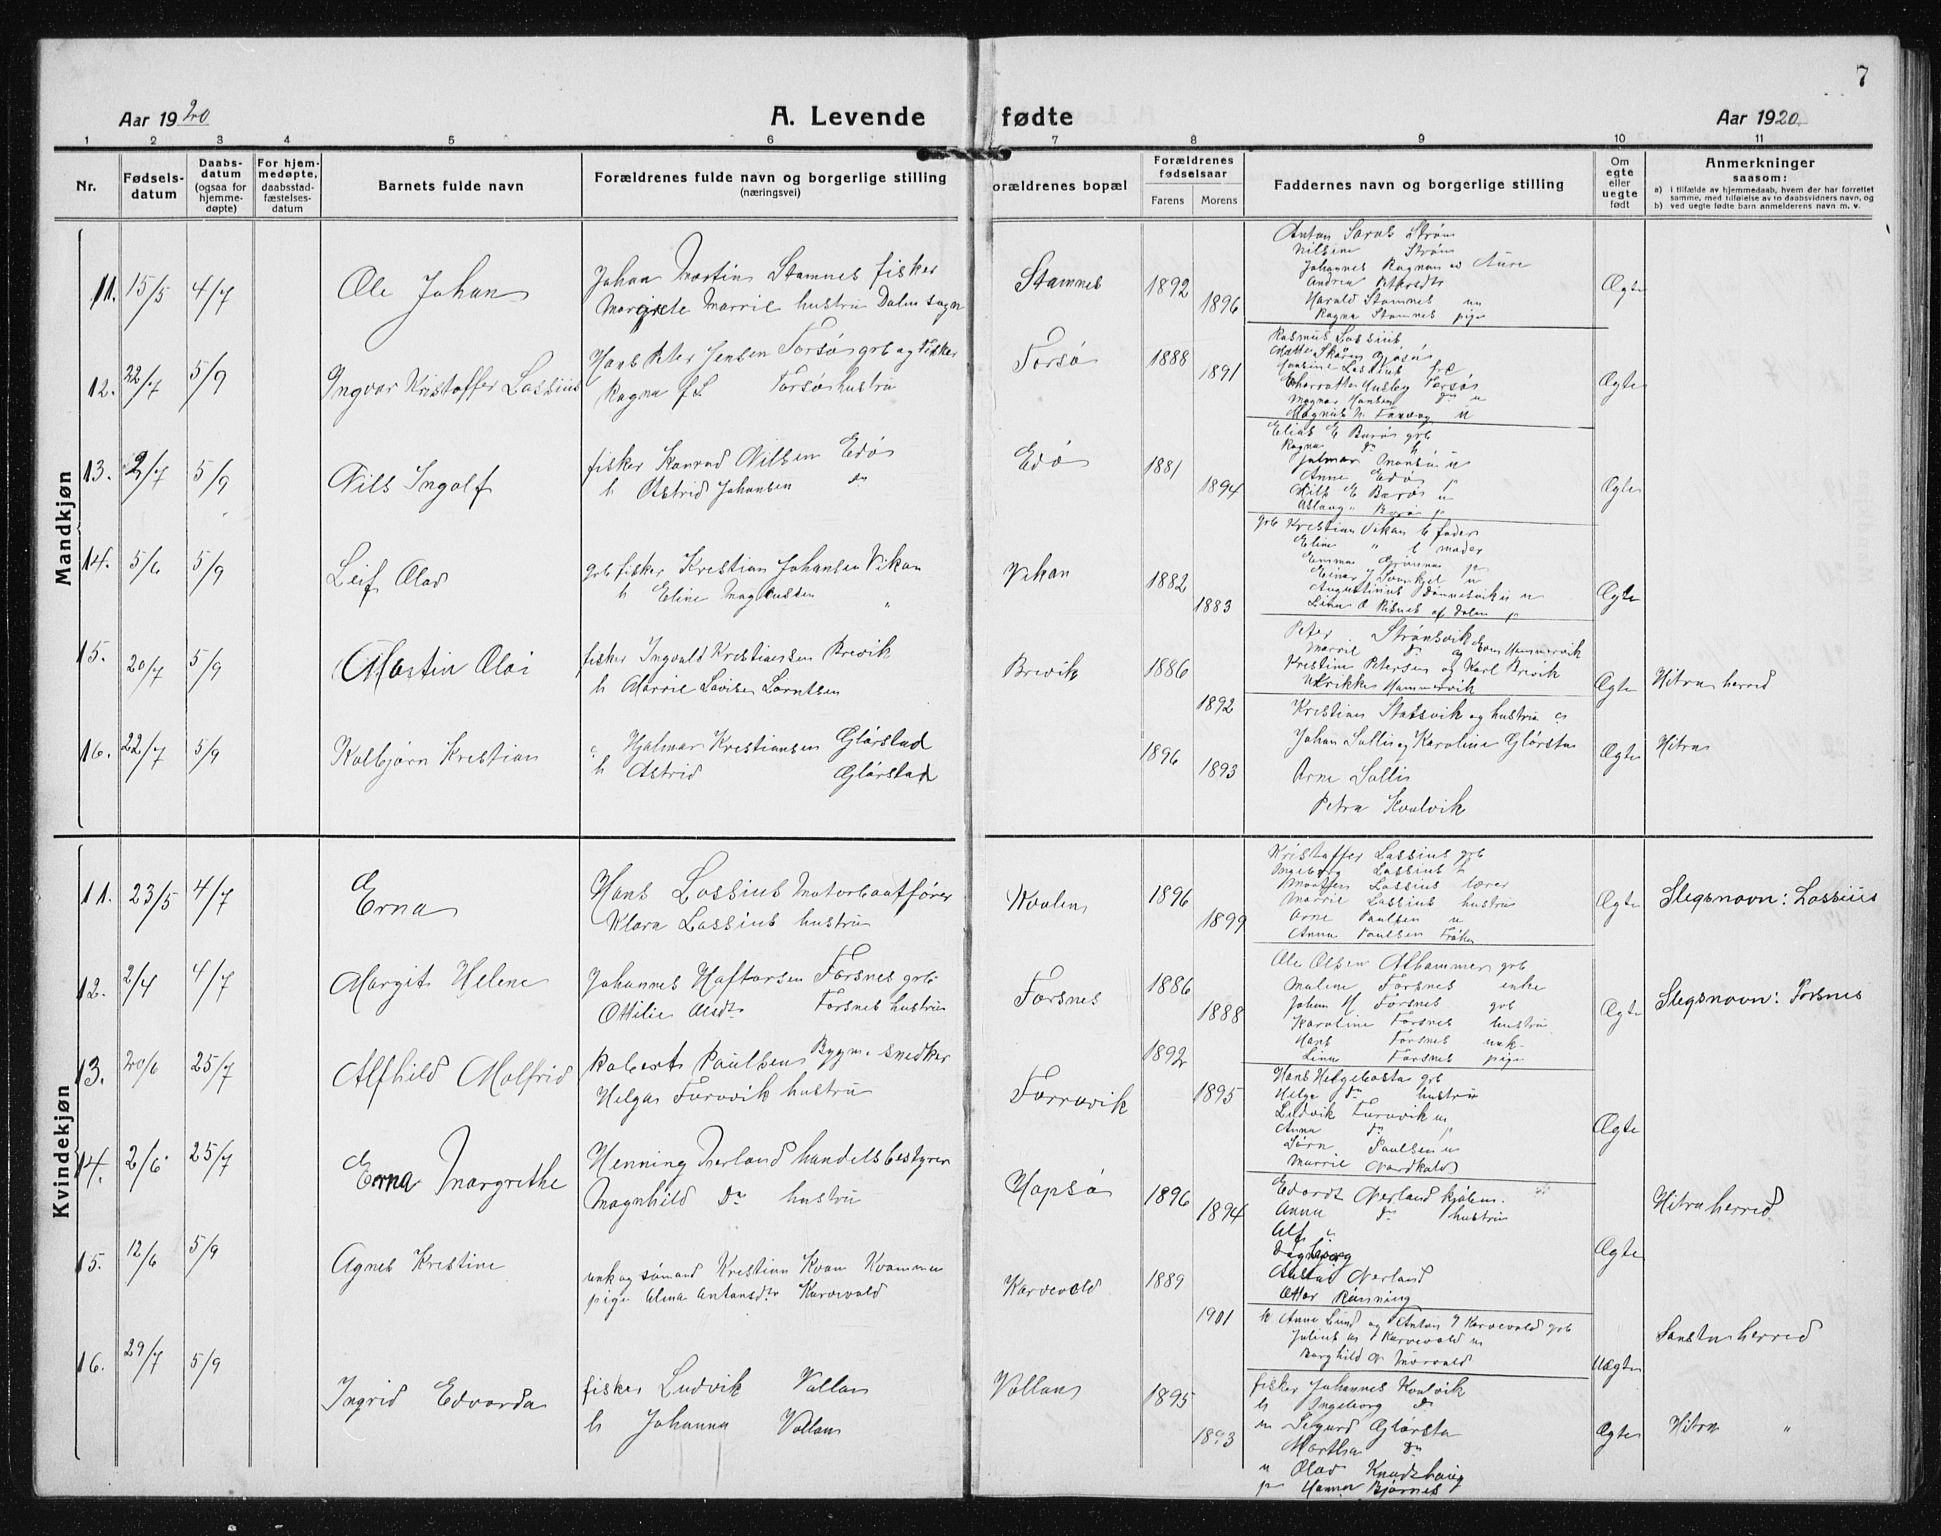 7
Aar 1920
A. Levende fødte
Aar 1920
1 2 3 4 5 6 7 8 9 10 11
Nr.
Fødsels-
datum
Daabs-
datum
(ogsaa for
hjemme-
døpte)
For hjem-
medøpte,
daabsstad-
fæstelses-
datum
Barnets fulde navn
Forældrenes fulde navn og borgerlige stilling
(næringsvei)
orældrenes bopæl
Forældrenes
fødselsaar
Farens Morens
Faddernes navn og borgerlige stilling
Om
egte
eller
uegte
født
Anmerkninger
saasom:
a) i tilfælde av hjemmedaab, hvem der har forrettet
samme, med tilføielse av to daabsvidners navn, og
b) ved uegte fødte barn anmelderens navn m. v.
Mandkjøn
11. 15/5 4/7 Ole Johan
Johan Martin Stamnes fisker
Margrete Marrie hustru Dalen sogn
Stamnes 1892 1896
Anton Strøm
Nilsine Strøm
Johannes Aure
Andrea Petersdtr
Harald Stamnes
Ragna Stamnes pige
Ægte
12. 22/7 5/9 Ingvar Kristoffer Lossius
Hans Peter Jensen Forsø grb og Fisker
Ragna f. L. Forsø hustru
Forsø 1888 1891
Rasmus Lossius
Lossius frk
Husby Forsø
Magnar Hansen
Ægte
13. 2/7 5/9 Nils Ingolf
fisker Konrad Nilsen Edø
h Astrid Johansen do
Edø 1881 1894
Elias E Barø grb
Ragna do h
Anne Edø p
Nils E Barø u
Aslaug " Barø p
Ægte
14. 5/6 5/9 Leif Olav
grb fisker Kristian Johansen Vikan
h Eline Magnussen "
Vikan 1882 1883
grb Kristian Vikan b fader
Eline " b moder
Emma p
Einar J u
Augustinus u
Ægte
15. 20/7 5/9 Martin Olai
fisker Ingvald Kristiansen Brevik
h Marrie Lovise Lorntsen
Brevik 1886 1892
Peter Strømsvik
Marrie do og Hammervik
Kristine Petersen og Karl Brevik
Ulrikke Hammervik
Ægte Hitra herred
16. 22/7 5/9 Kolbjørn Kristian
Hjalmar Kristiansen Glørstad
h Astrid Glørstad
1896 1893
Kristian og hustru
Johan Sollis og Karoline Glørsta
Arne Sollis
Petra Kvalvik
Ægte Hitra
Kvindekjøn
11. 23/5 4/7 Erna
Hans Lossius Motorbaatfører
Klara Lossius hustru
Kvalen 1896 1899
Kristoffer Lossius grb
Ingeborg Lossius h
Lossius lærer
Marrie Lossius hustru
Arne Paulsen u
Anna Paulsen Frøken
Ægte Slegsnavn: Lossius
12. 2/4 4/7 Margit Helene
Johannes Haftorsen Forsnes grb
Ottilie Olsdtr Forsnes hustru
Forsnes 1886 1888
Ole Olsen Alhammer grb
Malene Forsnes enke
Johan H Forsnes grb
Karoline Forsnes hustru
Hans Forsnes unk.
Lina Forsnes pige
Ægte Slegsnavn: Forsnes
13. 20/6 25/7 Alfhild Malfrid
Robert Paulsen Bygn. snedker
Helga Furovik hustru
Forrovik 1892 1895
Hans Helgebostø grb
Helga do hustru
Ludvik Furovik u
Anna do p
Jørn Paulsen u
Marrie
Ægte
14. 2/6 25/7 Erna Margrethe
Henning Nerland handelsbestyrer
Magnhild Do hustru
Hopsø 1896 1894
Edardt Nerland kjøbm.
Anna do hustru
Alf "
Nerland
Ottar Rønning
Ægte Hitra herred
15. 12/6 5/9 Agnes Kristine
unk og sømand Kristian Kvam
pige Alma Antonsdtr Karvevold
Karvevold 1889 1901
h Anne Lund og Anton J Karvevold grb
Julius u Karvevold u
Borghild
Uægte herred
16. 29/7 5/9 Ingrid Edvarda
fisker Ludvik Vollan
h Johanna Vollan
Vollan 1895 1893
fisker Johannes Kvalvik
h Ingeborg do
u Sigurd Glørsta
Martha do
u Olav Knudshaug
p Hanna Bjørnes
Ægte Hitra "